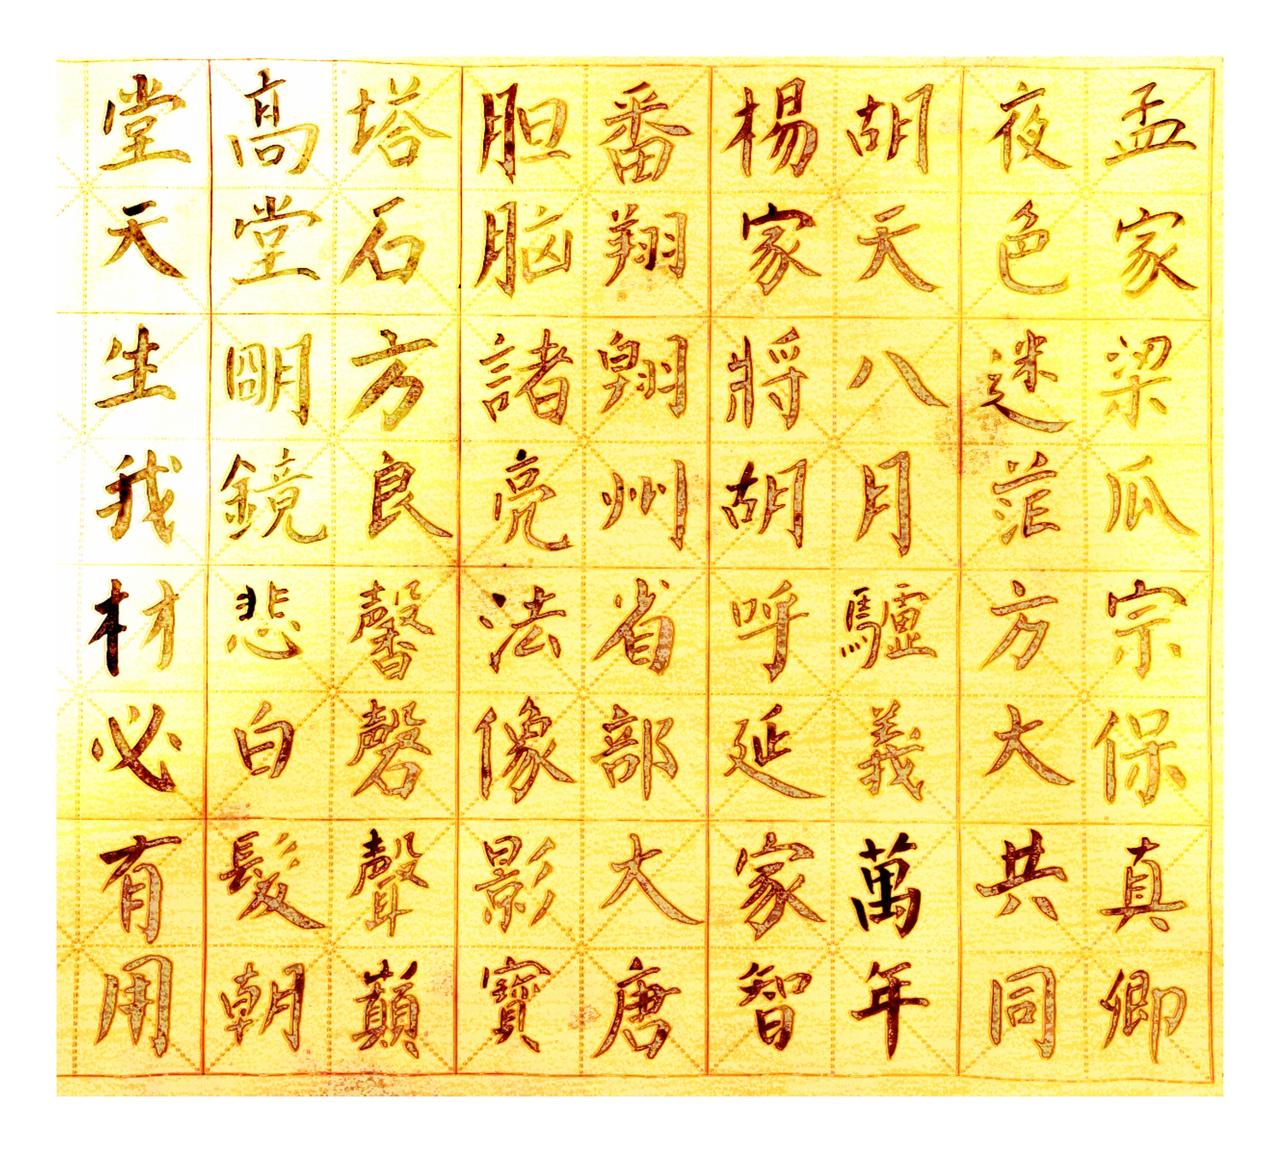 孟家梁瓜宗保真卿
夜色迷茫方大共同
胡天八月驢義萬年
楊家將胡呼延家智
番翔翱州省部大唐
胆脑諸亮法像影寶
塔石方良馨磬聲巔
高堂朙鏡悲白髮朝
堂天生我材必有用